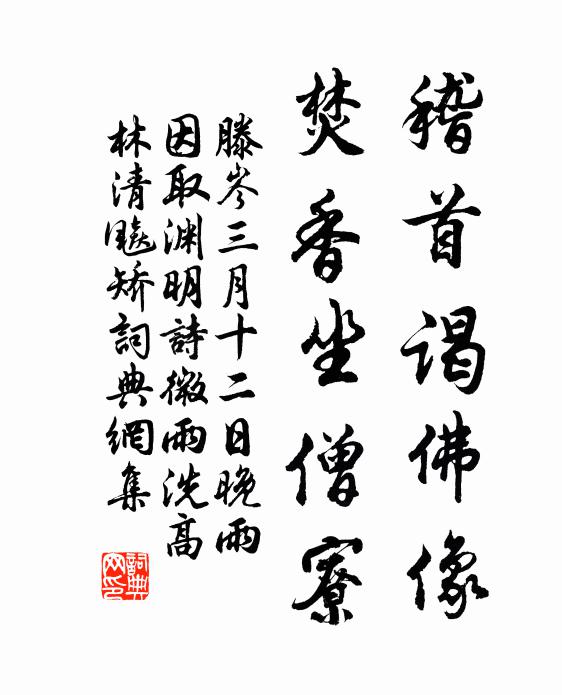 稽首謁佛像
焚香坐僧寮
滕岑三月十二日晚雨
因取淵明詩微雨洗高
林清飈矯詞典網集
詞典
网印